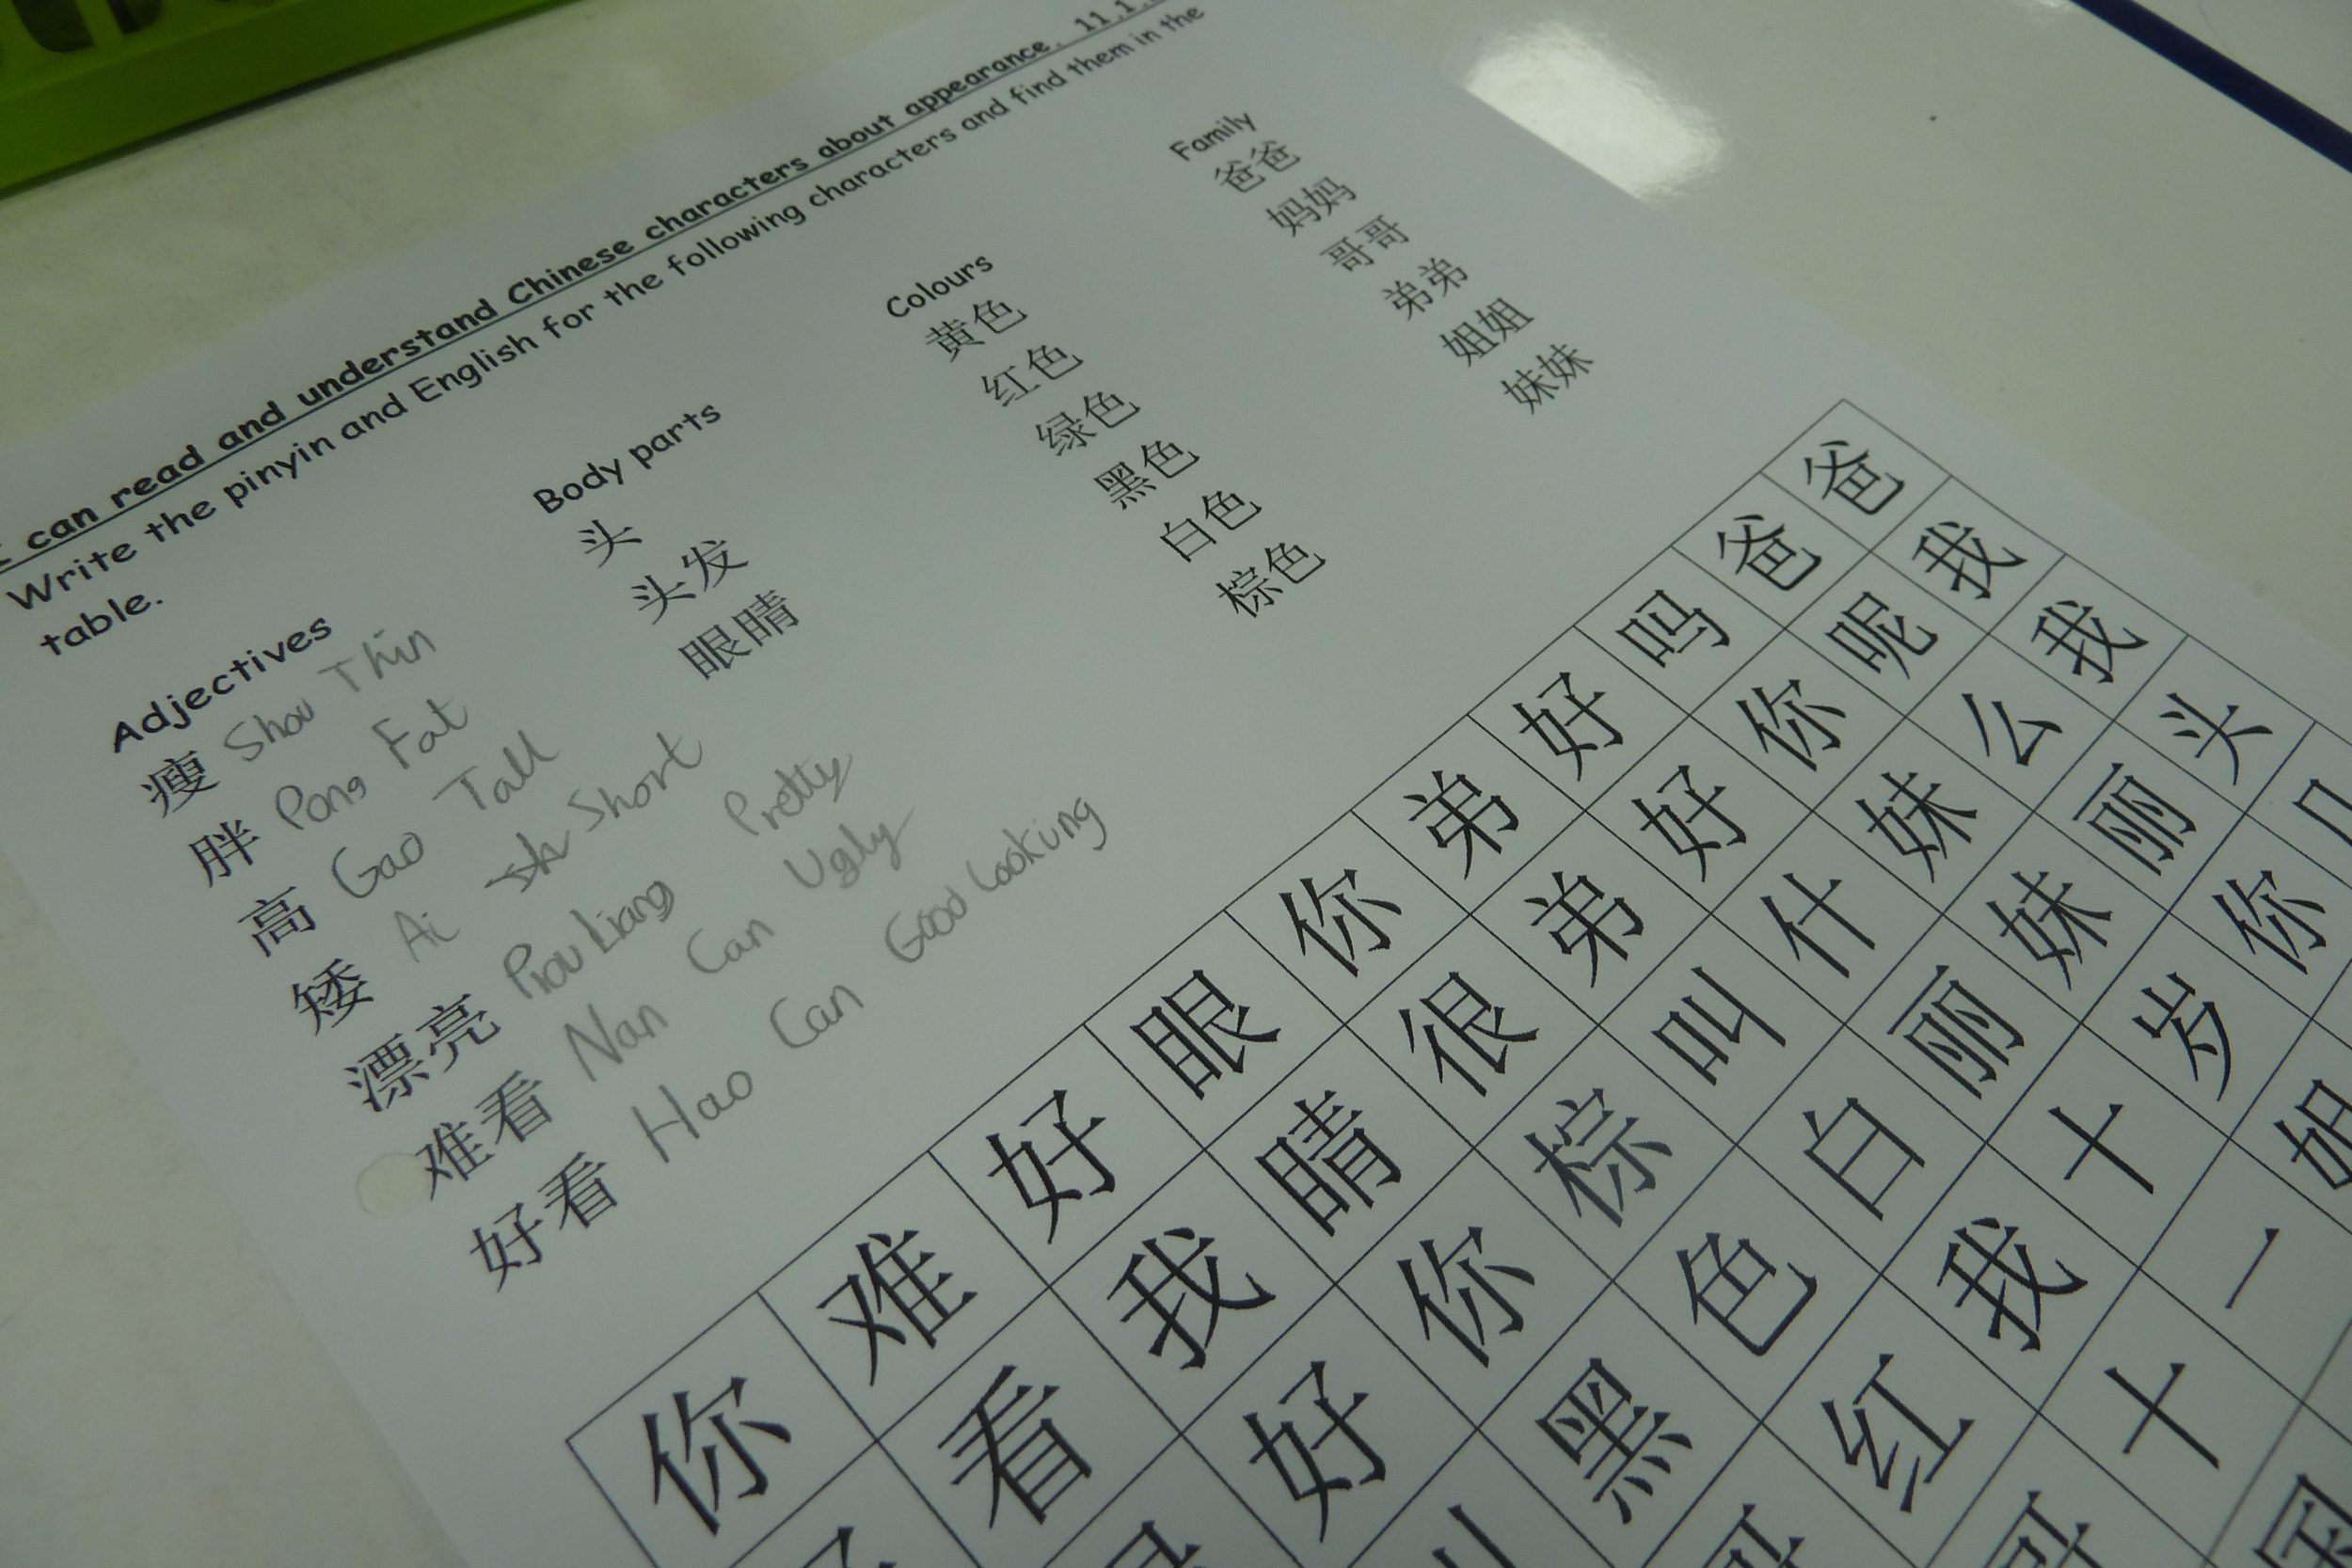 I can read and understand Chinese characters about appearance. 11.1.
Write the pinyin and English for the following characters and find them in the
table.
Adjectives
瘦 Shou Thin
胖 Pang Fat
高 Gao Tall
矮 Ai Short
漂亮 Piou Liang Pretty
难看 Nan Can Ugly
好看 Hao Can Good Looking
Body parts
头
头发
眼睛
Colours
黄色
红色
绿色
黑色
白色
棕色
Family
爸爸
妈妈
哥哥
弟弟
姐姐
妹妹
你 难 好 眼 你 弟 好 吗 爸 爸
看 我 睛 很 弟 好 你 呢 我
好 你 棕 叫 什 妹 么 我
黑 色 白 丽 妹 丽 头
红 我 十 岁 你
十 一 姐